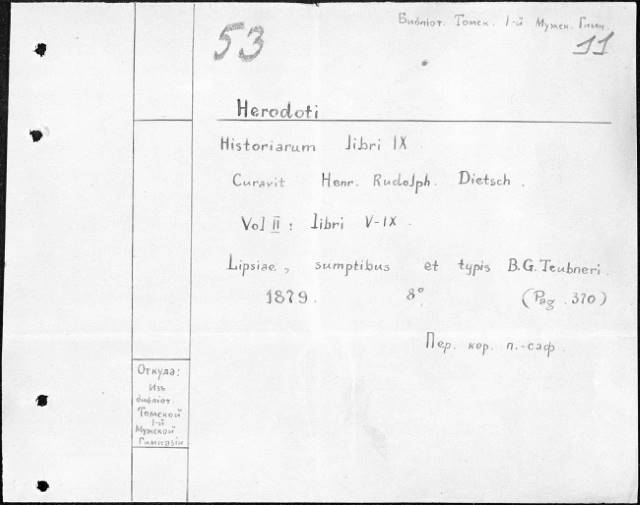 Библіот. Томск. 1-й Мужск. Гимн.
53
11
Herodoti
Historiarum libri IX.
Curavit Henr. Rudolph. Dietsch.
Vol II : libri V-IX.
Lipsiae, sumptibus et typis B.G. Teubneri.
1879. 8° (Pag. 370)
Пер. кор. п.-саф.
Откуда:
Изъ
библіот.
Томской
1-й
Мужской
Гимназіи